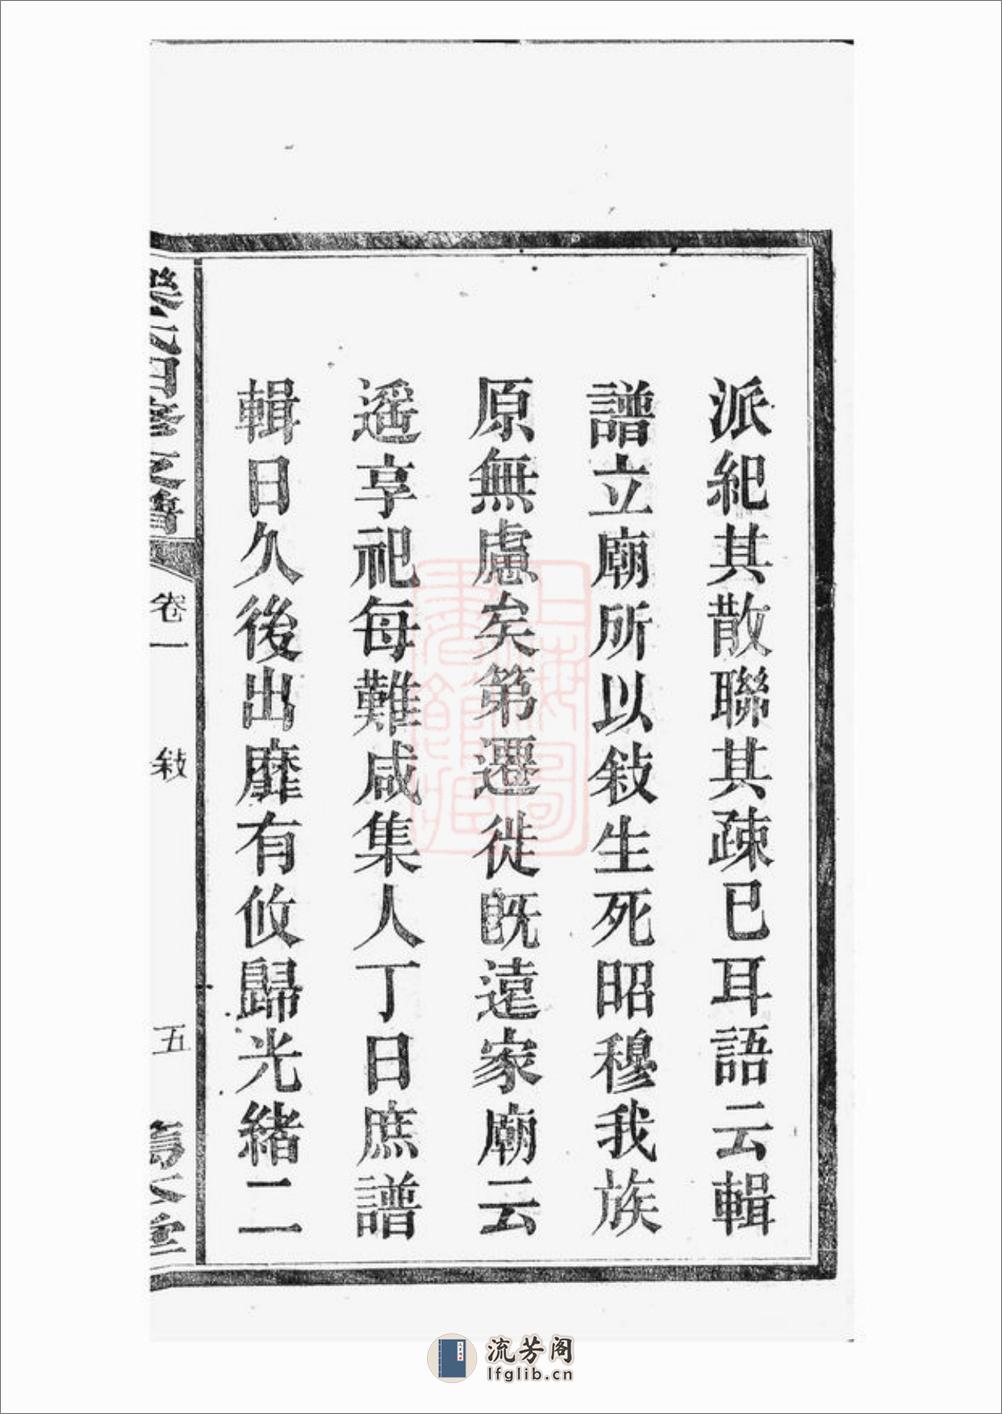 派紀其散聯其疎已耳語云輯
譜立廟所以敍生死昭穆我族
原無慮矣第遷徙旣遠家廟云
遥享祀每難咸集人丁日庶譜
輯日久後出靡有攸歸光緒二
卷一
敍
五
流芳阁
lfglib.cn